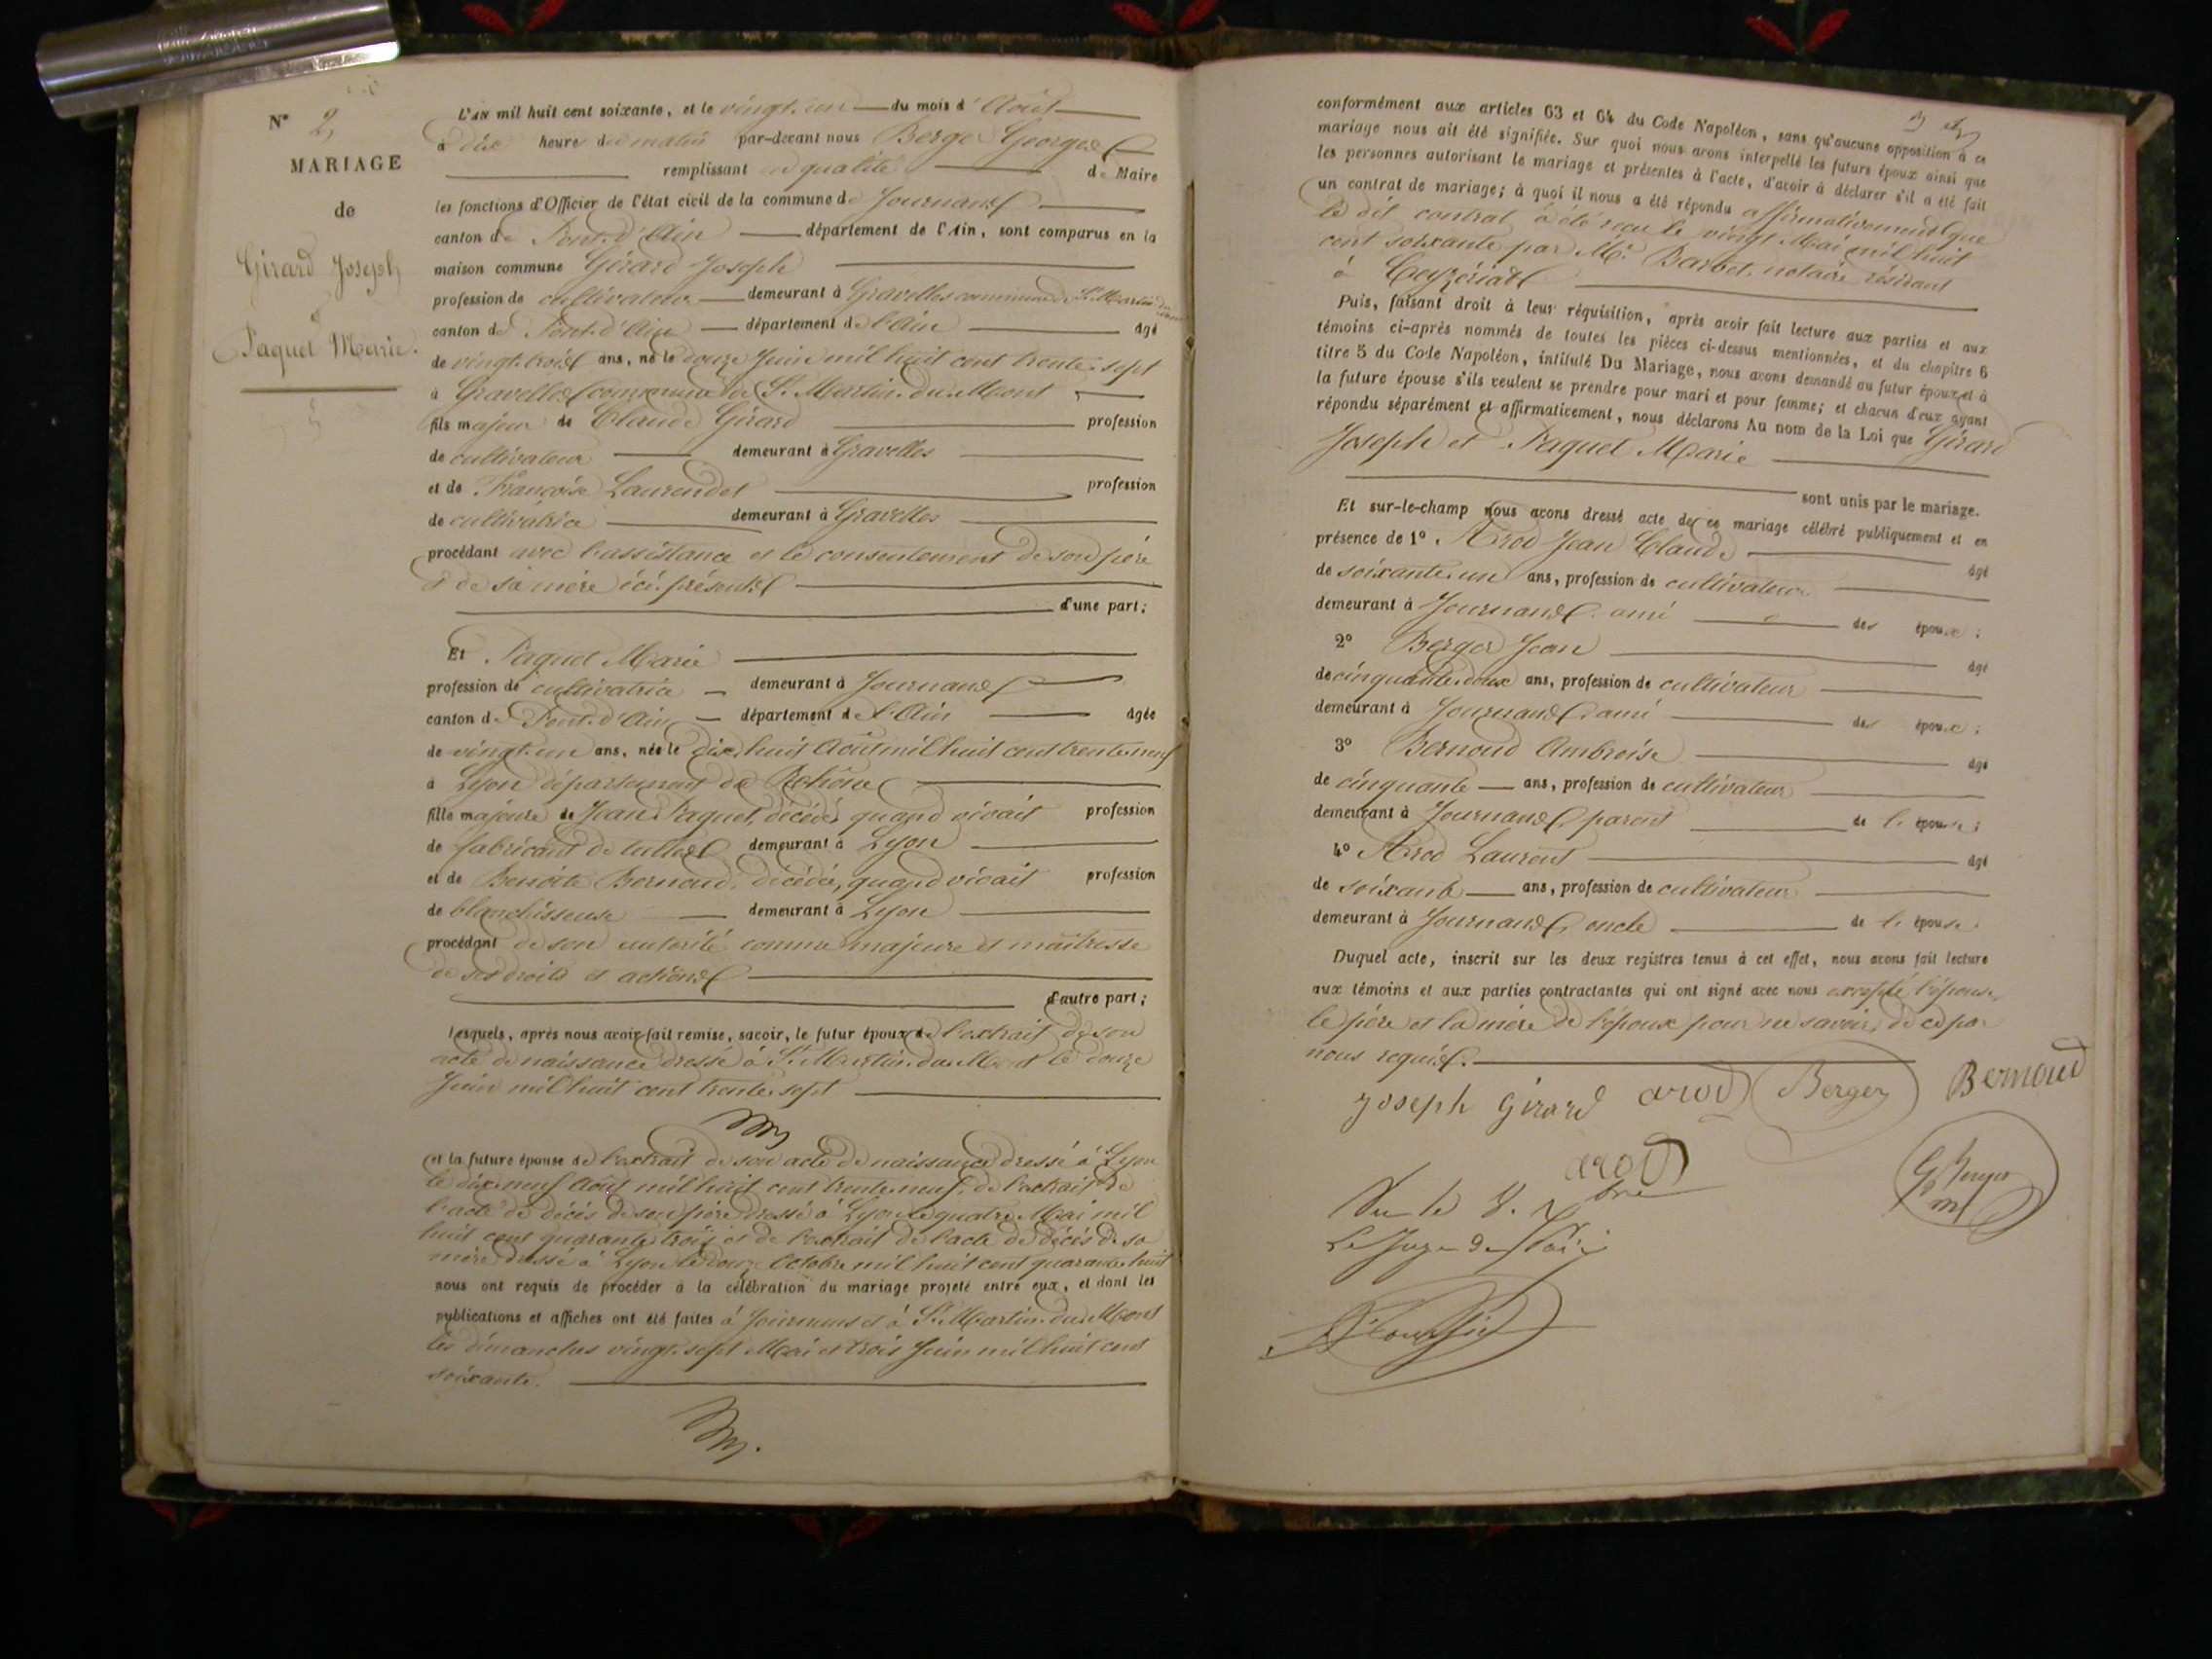 N° 2,
MARIAGE
de
Girard Joseph
et
Paquet Marie.
L'an mil huit cent soixante, et le vingt-un du mois d'Août
à dix heure du matin par-devant nous Berger Georges
remplissant en qualité de Maire
les fonctions d'Officier de l'état civil de la commune de Journans
canton de Pont-d'Ain département de l'Ain, sont comparus en la
maison commune Girard Joseph
profession de cultivateur demeurant à Gravelles commune de St Martin du Mont
canton de Pont-d'Ain département de l'Ain âgé
de vingt-trois ans, né le douze Juin mil huit cent trente-sept
à Gravelles commune de St Martin-du-Mont
fils majeur de Claude Girard profession
de cultivateur demeurant à Gravelles
et de Françoise Laurendet profession
de cultivatrice demeurant à Gravelles
procédant avec l'assistance et le consentement de son père
et de sa mère ici présents
d'une part;
Et Paquet Marie
profession de cultivatrice demeurant à Journans
canton de Pont-d'Ain département de l'Ain âgée
de vingt-un ans, née le dix-huit Août mil huit cent trente-neuf
à Lyon département du Rhône
fille majeure de Jean Paquet, décédé, quand vivait profession
de fabricant de tulles demeurant à Lyon
et de Benoite Bernoud, décédée, quand vivait profession
de blanchisseuse demeurant à Lyon
procédant de son autorité comme majeure et maîtresse
de ses droits et actions
d'autre part;
Lesquels, après nous avoir fait remise, savoir, le futur époux de l'extrait de son
acte de naissance dressé à St Martin-du-Mont le douze
Juin mil huit cent trente-sept
et la future épouse de l'extrait de son acte de naissance dressé à Lyon
le dix-neuf Août mil huit cent trente-neuf, de l'extrait de
l'acte de décès de son père dressé à Lyon le quatre Mai mil
huit cent quarante-trois et de l'extrait de l'acte de décès de sa
mère dressé à Lyon le douze Octobre mil huit cent quarante-huit
nous ont requis de procéder à la célébration du mariage projeté entre eux, et dont les
publications et affiches ont été faites à Journans et à St Martin-du-Mont
les dimanches vingt-sept Mai et trois Juin mil huit cent
soixante.
conformément aux articles 63 et 64 du Code Napoléon, sans qu'aucune opposition à ce
mariage nous ait été signifiée. Sur quoi nous avons interpellé les futurs époux ainsi que
les personnes autorisant le mariage et présentes à l'acte, d'avoir à déclarer s'il a été fait
un contrat de mariage; à quoi il nous a été répondu affirmativement que
le dit contrat a été reçu le vingt Mai mil huit
cent soixante par Me Barbet, notaire résidant
à Ceyzériat
Puis, faisant droit à leur réquisition, après avoir fait lecture aux parties et aux
témoins ci-après nommés de toutes les pièces ci-dessus mentionnées, et du chapitre 6
titre 5 du Code Napoléon, intitulé Du Mariage, nous avons demandé au futur époux et à
la future épouse s'ils veulent se prendre pour mari et pour femme; et chacun d'eux ayant
répondu séparément et affirmativement, nous déclarons Au nom de la Loi que Girard
Joseph et Paquet Marie
sont unis par le mariage.
Et sur-le-champ nous avons dressé acte de ce mariage célébré publiquement et en
présence de 1°. Arod Jean Claude âgé
de soixante-un ans, profession de cultivateur
demeurant à Journans ami des époux;
2° Berger Jean âgé
de cinquante-deux ans, profession de cultivateur
demeurant à Journans ami des époux;
3° Bernoud Ambroise âgé
de cinquante ans, profession de cultivateur
demeurant à Journans parent de l'épouse;
4° Arod Laurent âgé
de soixante ans, profession de cultivateur
demeurant à Journans oncle de l'épouse.
Duquel acte, inscrit sur les deux registres tenus à cet effet, nous avons fait lecture
aux témoins et aux parties contractantes qui ont signé avec nous excepté l'épouse,
le père et la mère de l'époux pour ne savoir, de ce par
nous requis.
Joseph Girard arod Berger Bernoud
arod
G Berger
m
Vu le 8. 7bre
Le Juge de Paix